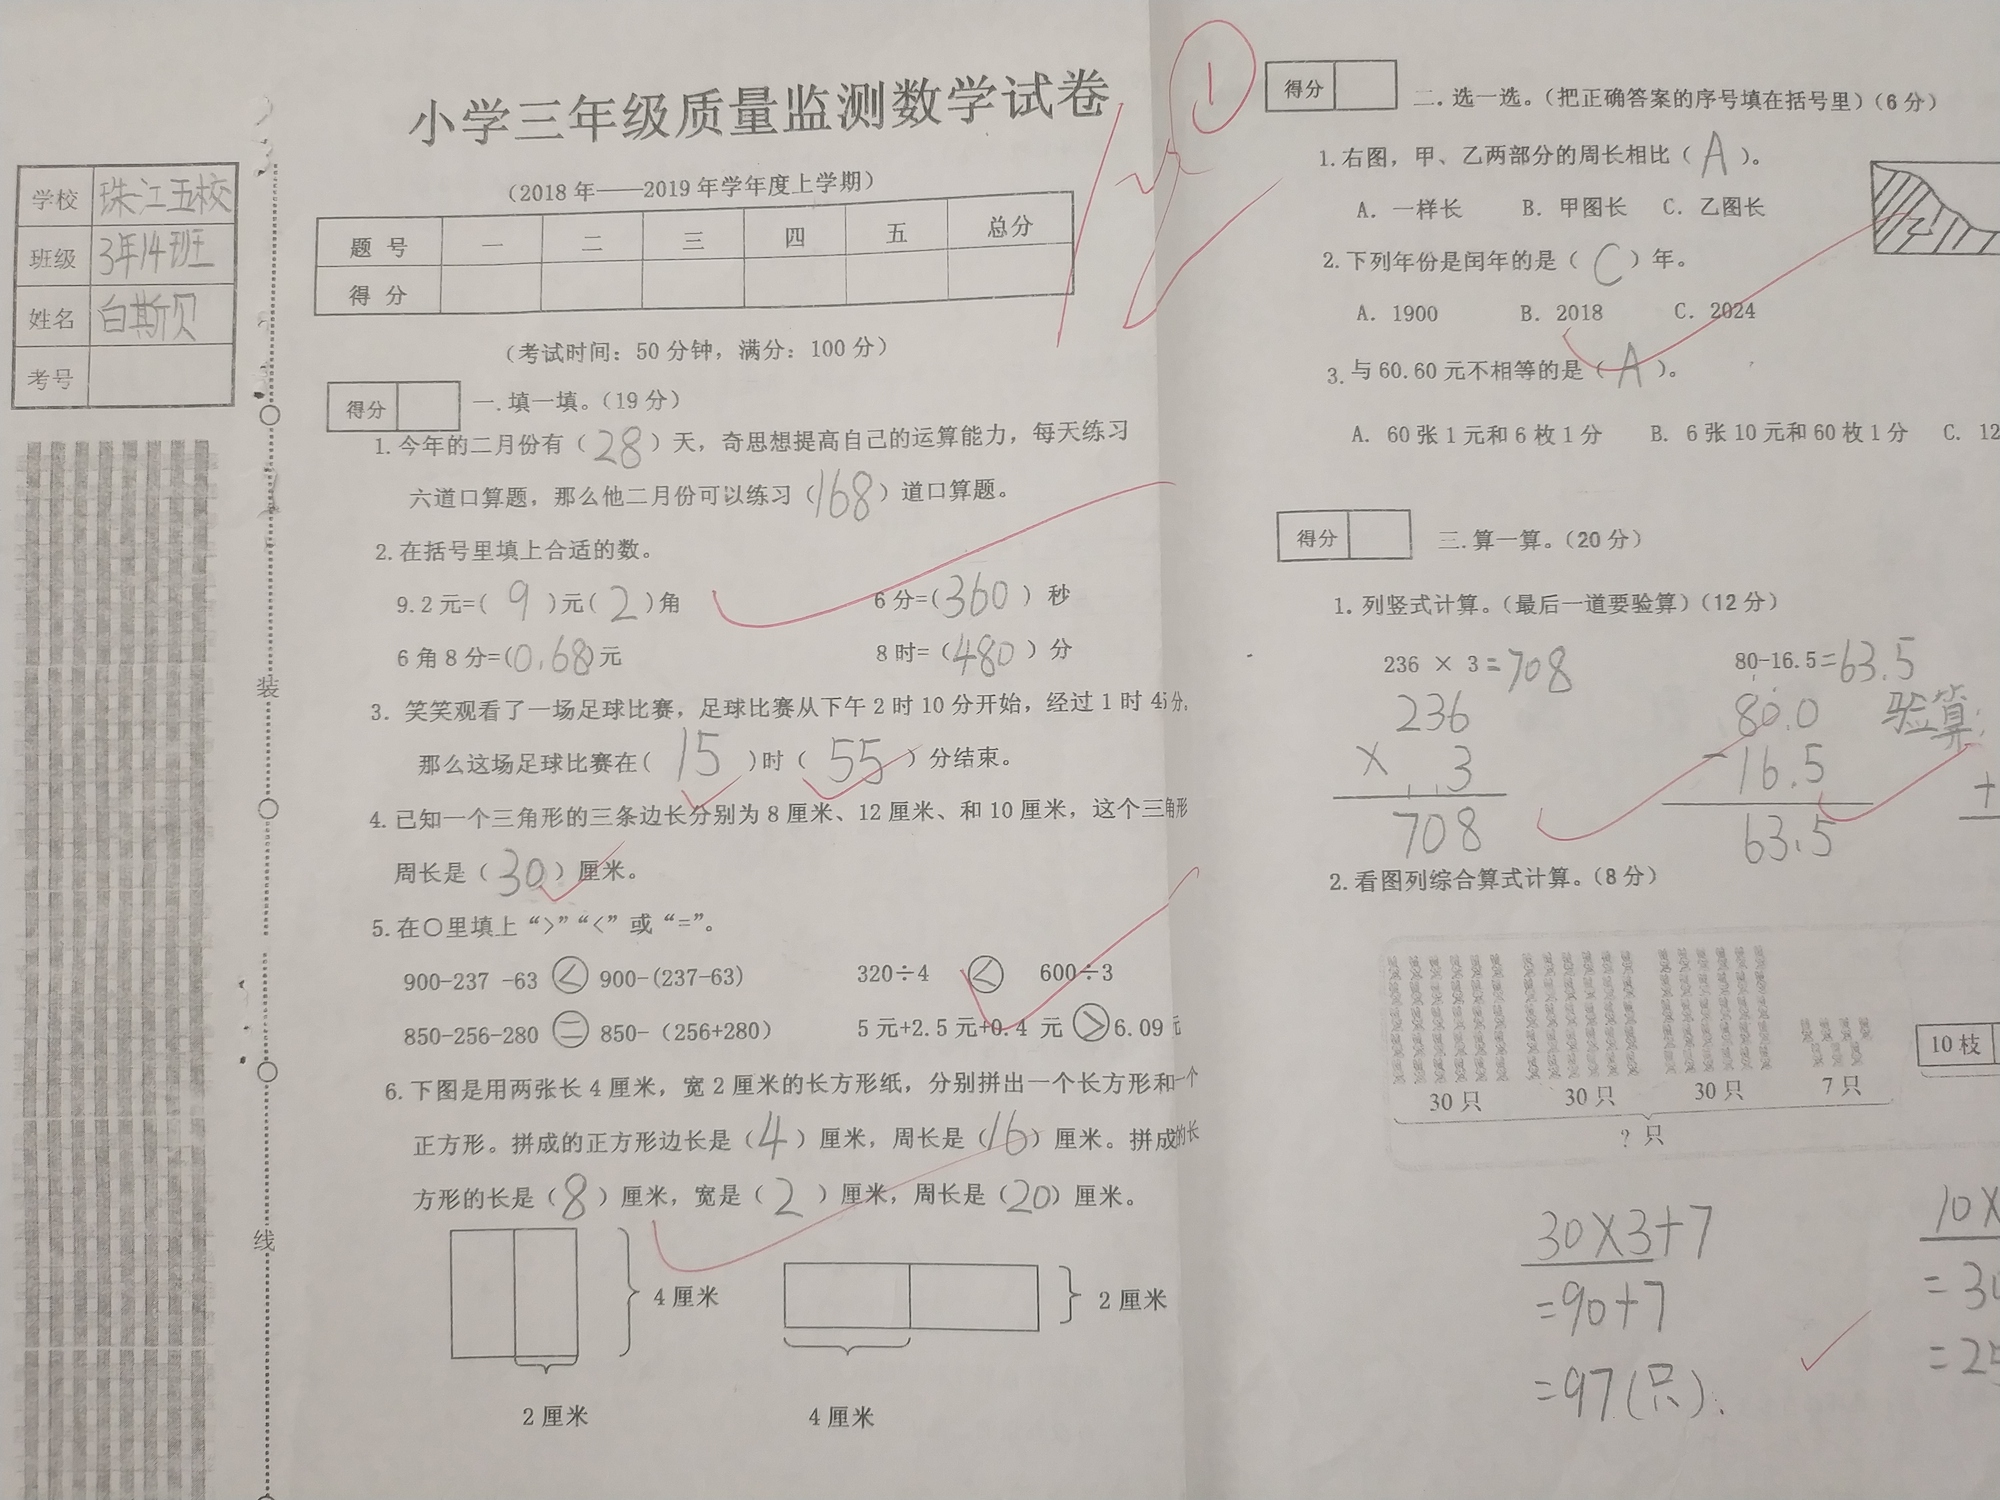 小学三年级质量监测数学试卷
(2018年——2019年学年度上学期)
学校 珠江五校
班级 3年14班
姓名 白斯贝
考号
题号 一 二 三 四 五 总分
得分
(考试时间：50分钟，满分：100分)
得分 一.填一填。(19分)
1.今年的二月份有(28)天，奇思想提高自己的运算能力，每天练习
六道口算题，那么他二月份可以练习(168)道口算题。
2.在括号里填上合适的数。
9.2元=(9)元(2)角 6分=(360)秒
6角8分=(0.68)元 8时=(480)分
3. 笑笑观看了一场足球比赛，足球比赛从下午2时10分开始，经过1时45分，
那么这场足球比赛在(15)时(55)分结束。
4.已知一个三角形的三条边长分别为8厘米、12厘米、和10厘米，这个三角形
周长是(30)厘米。
5.在○里填上“>”“<”或“=”。
900-237 -63 < 900-(237-63) 320÷4 < 600÷3
850-256-280 = 850-（256+280） 5元+2.5元+0.4 元 > 6.09元
6.下图是用两张长4厘米，宽2厘米的长方形纸，分别拼出一个长方形和一个
正方形。拼成的正方形边长是(4)厘米，周长是(16)厘米。拼成的长
方形的长是(8)厘米，宽是(2)厘米，周长是(20)厘米。
4厘米 2厘米
2厘米 4厘米
装
线
1
得分 二.选一选。(把正确答案的序号填在括号里)(6分)
1.右图，甲、乙两部分的周长相比(A)。
A. 一样长 B. 甲图长 C. 乙图长
2.下列年份是闰年的是(C)年。
A. 1900 B. 2018 C. 2024
3.与60.60元不相等的是(A)。
A. 60张1元和6枚1分 B. 6张10元和60枚1分 C. 12
得分 三.算一算。(20分)
1.列竖式计算。(最后一道要验算)(12分)
236 × 3=708 80-16.5=63.5
236 80.0 验算：
× 3 -16.5 +
708 63.5
2.看图列综合算式计算。(8分)
30只 30只 30只 7只 10枝
? 只
30×3+7 10×
=90+7 =30
=97(只). =25